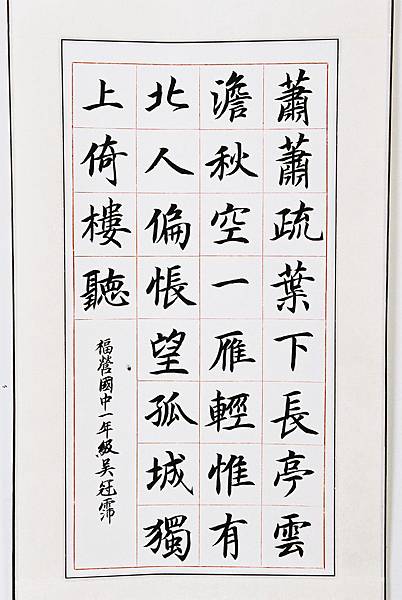 蕭蕭疏葉下長亭雲
澹秋空一雁輕惟有
北人偏悵望孤城獨
上倚樓聽
福營國中一年級吳冠霈